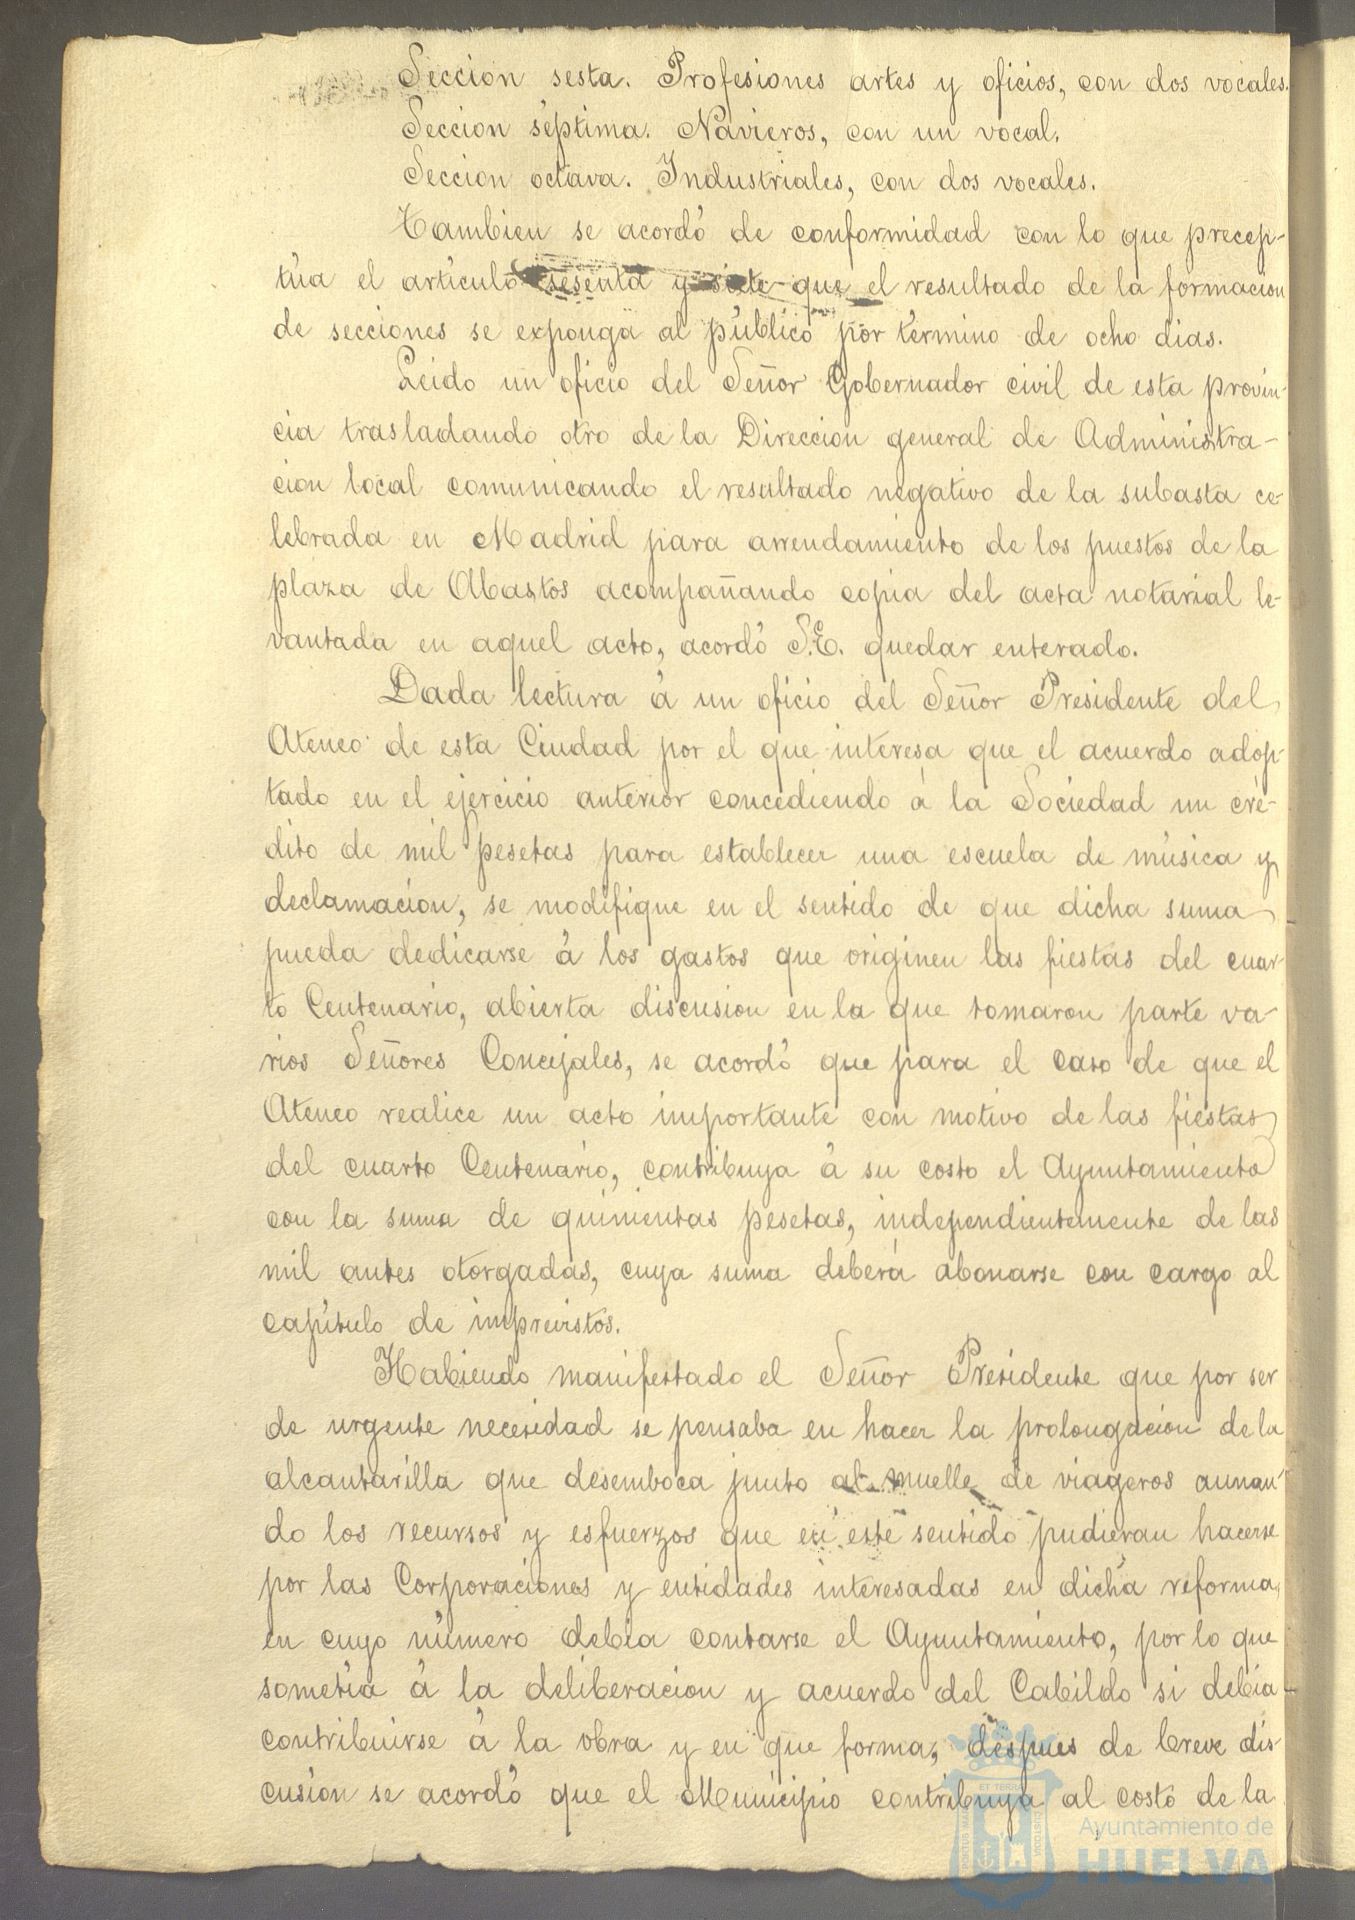 Seccion sesta. Profesiones artes y oficios, con dos vocales.
Seccion séptima. Navieros, con un vocal.
Seccion octava. Industriales, con dos vocales.
Tambien se acordó de conformidad con lo que precep-
túa el artículo sesenta y siete que el resultado de la formacion
de secciones se exponga al público por término de ocho dias.
Leido un oficio del Señor Gobernador civil de esta provin-
cia trasladando otro de la Direccion general de Administra-
cion local comunicando el resultado negativo de la subasta ce-
lebrada en Madrid para arrendamiento de los puestos de la
plaza de Abastos acompañando copia del acta notarial le-
vantada en aquel acto, acordó S.E. quedar enterado.
Dada lectura á un oficio del Señor Presidente del
Ateneo de esta Ciudad por el que interesa que el acuerdo adop-
tado en el ejercicio anterior concediendo á la Sociedad un cré-
dito de mil pesetas para establecer una escuela de música y
declamación, se modifique en el sentido de que dicha suma
pueda dedicarse á los gastos que originen las fiestas del cuar-
to Centenario, abierta discusion en la que tomaron parte va-
rios Señores Concejales, se acordó que para el caso de que el
Ateneo realice un acto importante con motivo de las fiestas
del cuarto Centenario, contribuya á su costo el Ayuntamiento
con la suma de quinientas pesetas, independientemente de las
mil antes otorgadas, cuya suma deberá abonarse con cargo al
capítulo de imprevistos.
Habiendo manifestado el Señor Presidente que por ser
de urgente necesidad se pensaba en hacer la prolongacion de la
alcantarilla que desemboca junto al muelle de viageros aunan-
do los recursos y esfuerzos que en este sentido pudieran hacerse
por las Corporaciones y entidades interesadas en dicha reforma,
en cuyo número debia contarse el Ayuntamiento, por lo que
sometia á la deliberacion y acuerdo del Cabildo si debia
contribuirse á la obra y en que forma, despues de breve dis-
cusion se acordó que el Municipio contribuya al costo de la
ET TERRAE
Ayuntamiento de
HUELVA